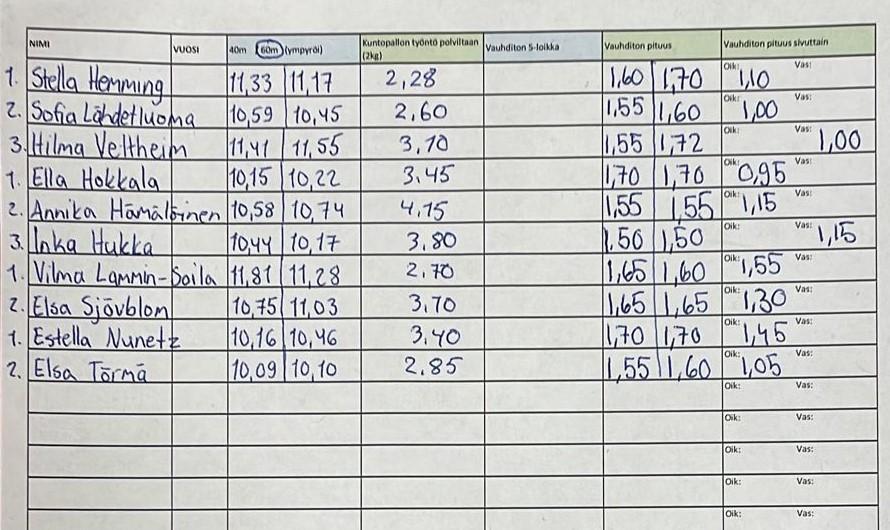 NIMI VUOSI 40m 60m (ympyröi) Kuntopallon työntö polviltaan (2kg) Vauhditon 5-loikka Vauhditon pituus Vauhditon pituus sivuttain
1. Stella Hemming 11,33 11,17 2,28 1,60 1,70 Oik: 1,10 Vas:
2. Sofia Lähdetluoma 10,59 10,45 2,60 1,55 1,60 Oik: 1,00 Vas:
3. Hilma Veltheim 11,41 11,55 3,10 1,55 1,72 Oik: Vas: 1,00
1. Ella Hokkala 10,15 10,22 3.45 1,70 1,70 Oik: 0,95 Vas:
2. Annika Hämäläinen 10,58 10,74 4,15 1,55 1,55 Oik: 1,15 Vas:
3. Inka Hukka 10,44 10,17 3.80 1.50 1,50 Oik: Vas: 1,15
1. Vilma Lammin-Soila 11,81 11,28 2.70 1,65 1,60 Oik: 1,55 Vas:
2. Elsa Sjövblom 10,75 11,03 3,70 1,65 1,65 Oik: 1,30 Vas:
1. Estella Nunetz 10,16 10,46 3.40 1,70 1,70 Oik: 1,45 Vas:
2. Elsa Törmä 10,09 10,10 2.85 1,55 1,60 Oik: 1,05 Vas:
Oik: Vas:
Oik: Vas:
Oik: Vas:
Oik: Vas:
Oik: Vas: